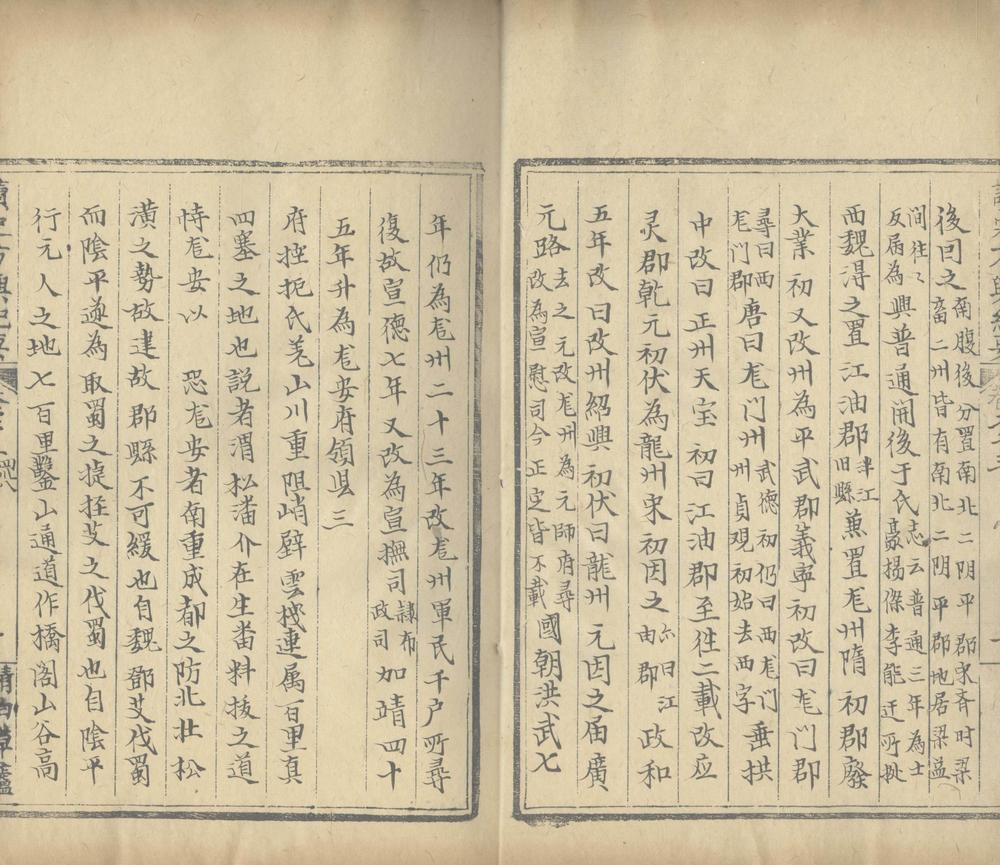 後因之南腹後分置南北二阴平郡宋齐时梁
畜二州皆有南北二阴平郡地居梁益
间往〻
反属為興普通開後于氏志云普通三年為士
豪揚傑李能迁所挑
西魏淂之置江油郡
旧縣兼置尨州隋初郡廢
大業初又改州為平武郡義寧初改曰尨门郡
尋曰西尨门郡唐曰尨门州武德初仍曰西尨门
州貞观初始去西字垂拱
中改曰正州天宝初曰江油郡至徃二載改应
灵郡乾元初伏為龍州宋初因之亦曰江
由郡政和
五年改曰改州紹興初伏曰龍州元因之届廣
元路去之元改尨州為元师府尋
改為宣慰司今正定皆不載國朝洪武七
年仍為尨州二十三年改尨州軍民千户所尋
復故宣德七年又改為宣撫司隷布
政司如靖四十
五年升為尨安府領县三
府控扼氐羌山川重阻峭壁雲棧連属百里真
四塞之地也説者渭松潘介在生畨料抜之道
恃尨安以 恐尨安者南重成都之防北壮松
潢之勢故建故郡縣不可緩也自魏鄧艾伐蜀
而陰平遂為取蜀之捷徑艾之伐蜀也自陰平
行元人之地七百里鑿山通道作橋阁山谷高